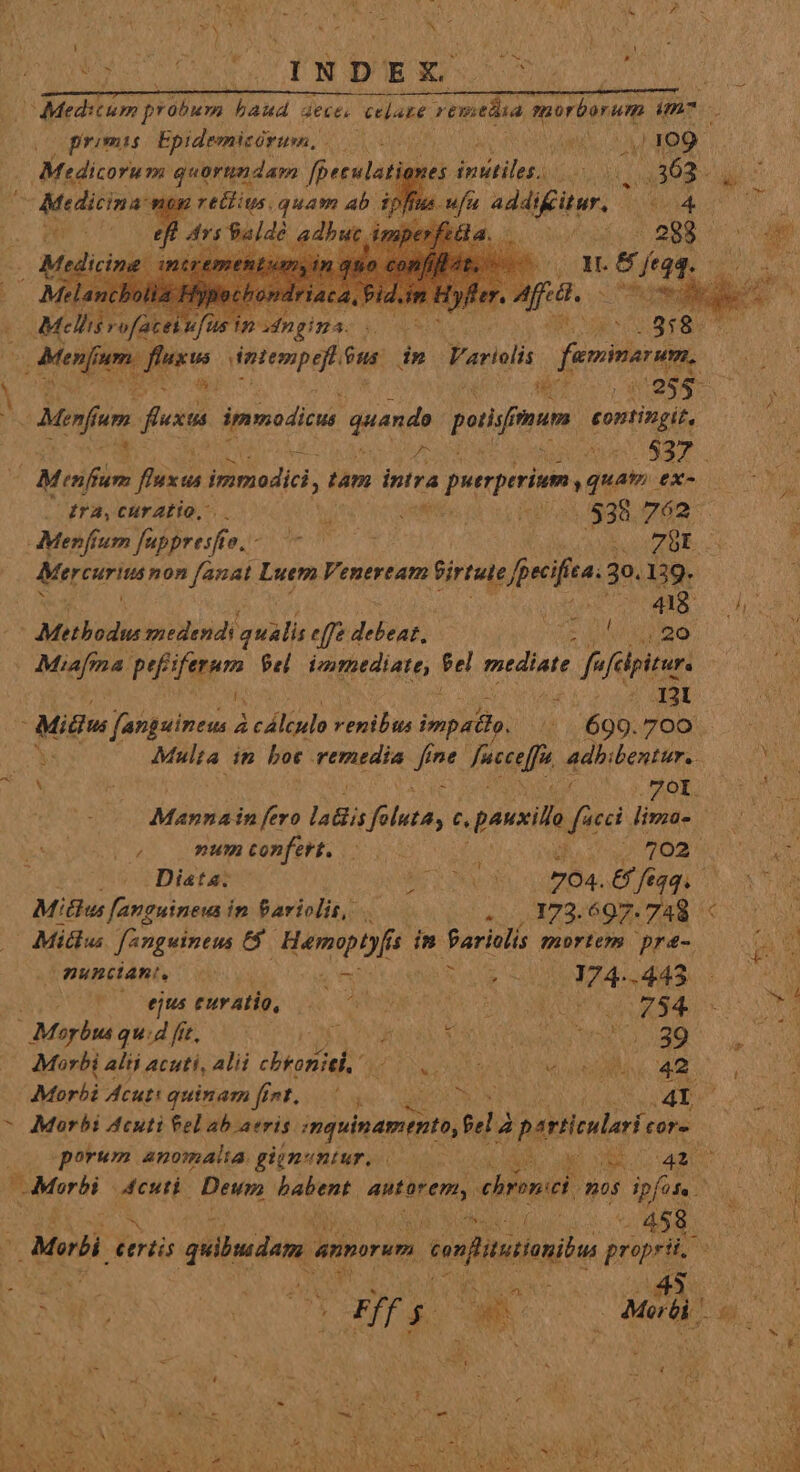 INDEX.
Medicum probum haud decet celare remedia morborum im-
primis Epidemicorum, 109
Medicorum quorundam speculationes inutiles. 363
Medicina non rectius quam ab ipsius usu addiscitur, 4
est Ars valdè adhuc imperfecta. 283
Medicinæ incrementum, in quo consistat, 11. & seqq.
Melancholia Hypochondriaca, vid. in Hyster. Affect.
Mellis rosacei usus in Angina. 358
Mensium fluxus intempestivus in Variolis fæminarum.
255
Mensium fluxus immodicus quando potissimum contingit.
537
Mensium fluxus immodici, tam intra puerperium, quam ex-
tra, curatio, 538 762
Mensium suppressio. 781
Mercurius non sanat Luem Veneream virtute specifica. 30. 139.
418
Methodus medendi qualis esse debeat. 20
Miasma pestiferum vel immediate, vel mediate suscipitur.
131
Mictus sanguineus à cálculo renibus impacto. 699. 700
Multa in hoc remedia sine successu adhibentur.
701
Manna in sero lactis soluta, c. pauxillo succi limo-
num confert. 702
Diæta. 704. & seqq.
Mictus sanguineus in variolis, 173. 697. 748
Mictus sanguineus & Hæmoptysis in variolis mortem præ-
nunciant. 174. 443
ejus curatio, 754
Morbus quid sit. 39
Morbi alii acuti, alii chronici, 42
Morbi Acuti quinam sint. 41
Morbi Acuti vel ab aeris inquinamento, vel à particulari cor-
porum anomalia gignuntur. 42
Morbi Acuti Deum habent autorem, chronici nos ipsos.
458
Morbi certis quibusdam annorum constitutionibus proprii.
45
Fff 5 Morbi